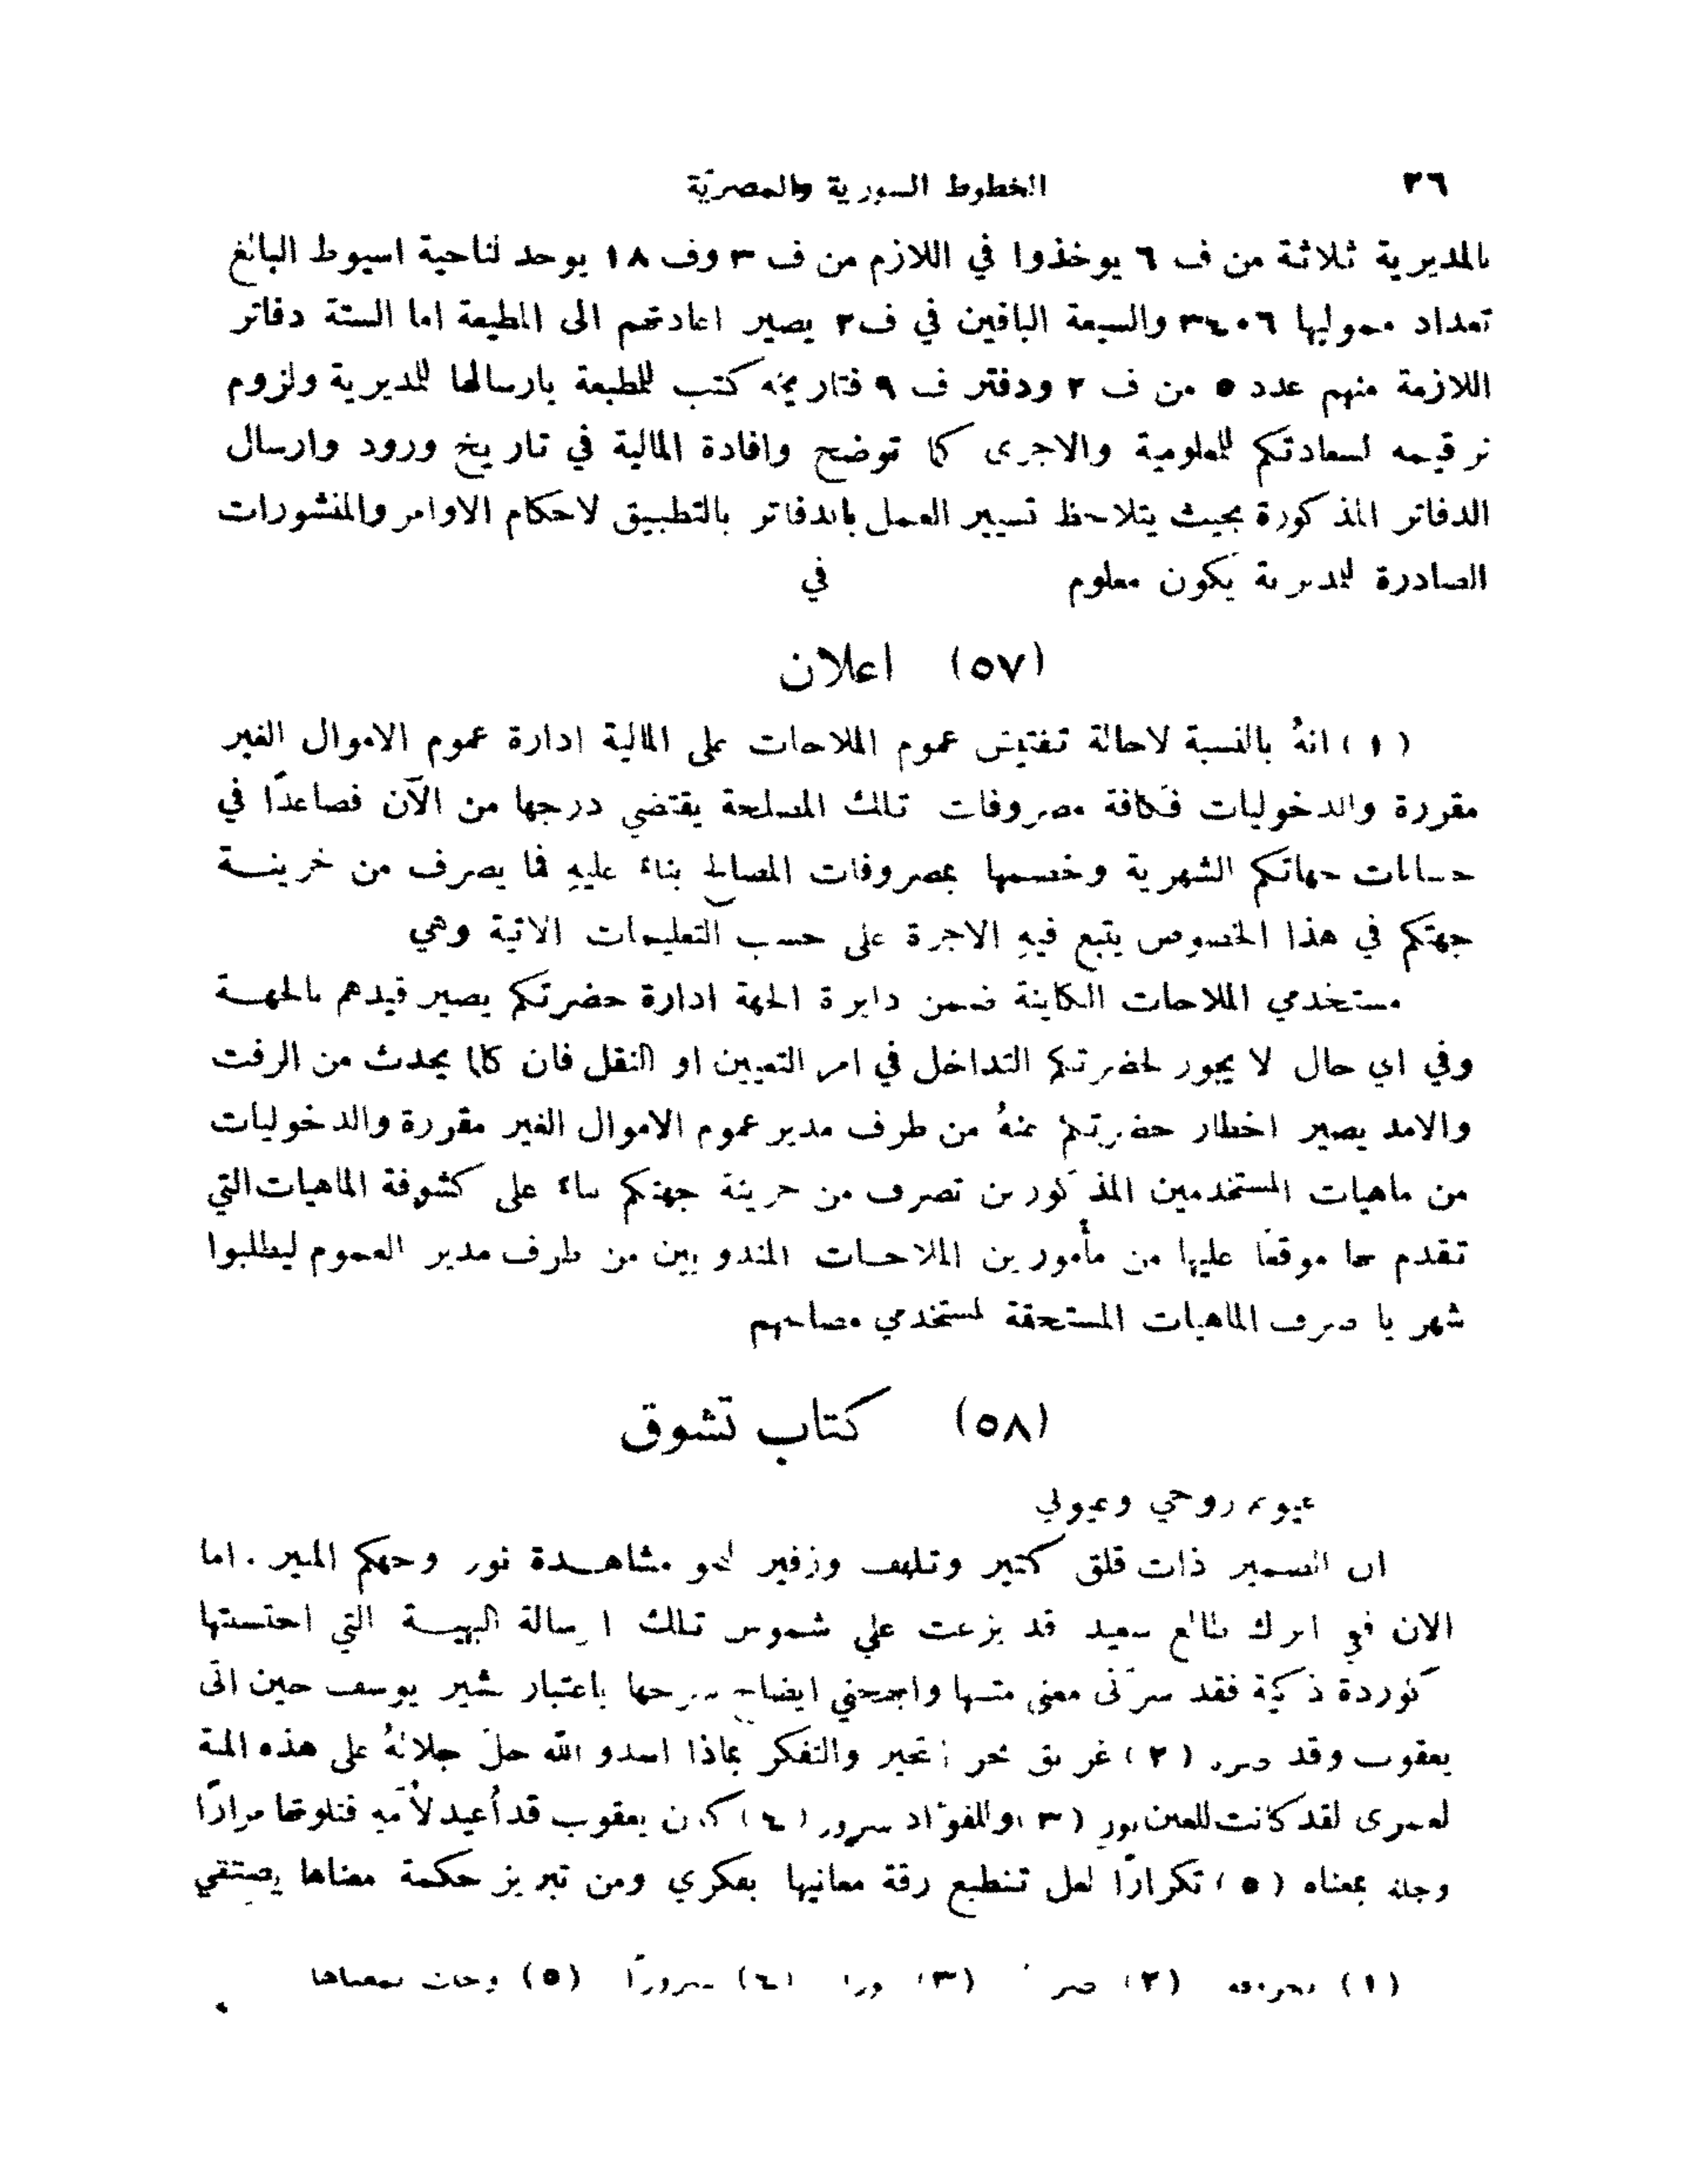 ٣٦ الخطوط السورية والمصريّة
بالمديرية ثلاثة من ف ٦ يوخذوا في اللازم من ف ٣ وف ١٨ يوحد لناحية اسيوط البالغ
تعداد ممولیها ٣٤٠٦ والسبعة الباقين في ف ٢ يصير اعادتهم الى المطبعة اما الستة دفاتر
اللازمة منهم عدد ٥ من ف ٢ ودفتر ف ٩ فتاريخه كتب للمطبعة بارسالها للمديرية ولزوم
ترقيمه لسعادتكم للمعلومية والاجرى كما توضح وافادة المالية في تاريخ ورود وارسال
الدفاتر المذكورة بحيث يتلاحظ تسيير العمل بالدفاتر بالتطبيق لاحكام الاوامر والمنشورات
الصادرة للمديرية يكون معلوم في
(٥٧) اعلان
(١) انهُ بالنسبة لاحالة تفتيش عموم الملاحات على المالية ادارة عموم الاموال الغير
مقررة والدخوليات فكافة مصروفات تلك المصلحة يقتضي درجها من الآن فصاعدًا في
حسابات جهاتكم الشهرية وخصمها بمصروفات المصالح بناء عليهِ فما يصرف من خزينة
جهتكم في هذا الخصوص يتبع فيهِ الاجرة على حسب التعليمات الاتية وهي
مستخدمي الملاحات الكاينة ضمن دايرة الجهة ادارة حضرتكم يصير قيدهم بالجهة
وفي اي حال لا يجوز لحضرتكم التداخل في امر التعيين او النقل فان كلما يحدث من الرفت
والامد يصير اخطار حضرتكم عنهُ من طرف مدير عموم الاموال الغير مقررة والدخوليات
من ماهيات المستخدمين المذكورين تصرف من خزينة جهتكم بناء على كشوفة الماهيات التي
تقدم بها موقعًا عليها من مأمورين الملاحات المندوبين من طرف مدير العموم ليطلبوا
شهريا صرف الماهيات المستحقة لمستخدمي مصلحتهم
(٥٨) كتاب تشوق
روحي
ان الضمير ذات قلق كتير وتلهف وزفير نحو مشاهدة نور وجهكم المنير . اما
الان ففي ابرك طالع سعيد قد بزغت علي شموس تلك الرسالة البهية التي احتسبتها
كوردة ذكية فقد سرّنى معنى متنها وابهجني ايضاح شرحها باعتبار بشير يوسف حين اتى
يعقوب وقد صرت (٢) غريق بحر التحير والتفكر بماذا اسدو الله جلّ جلالهُ على هذه المنة
لعمرى لقد كانت للعين نور (٣) وللفوّاد سرور (٤) كأن يعقوب قد أُعيد لأُمّهِ فتلوتها مرارًا
وجله بمعناه (٥) تكرارًا لعل تنطبع رقة معانيها بفكري ومن تبريز حكمة معناها يستقي
(١) (٢) (٣) (٤) سرورًا (٥) بمعناها